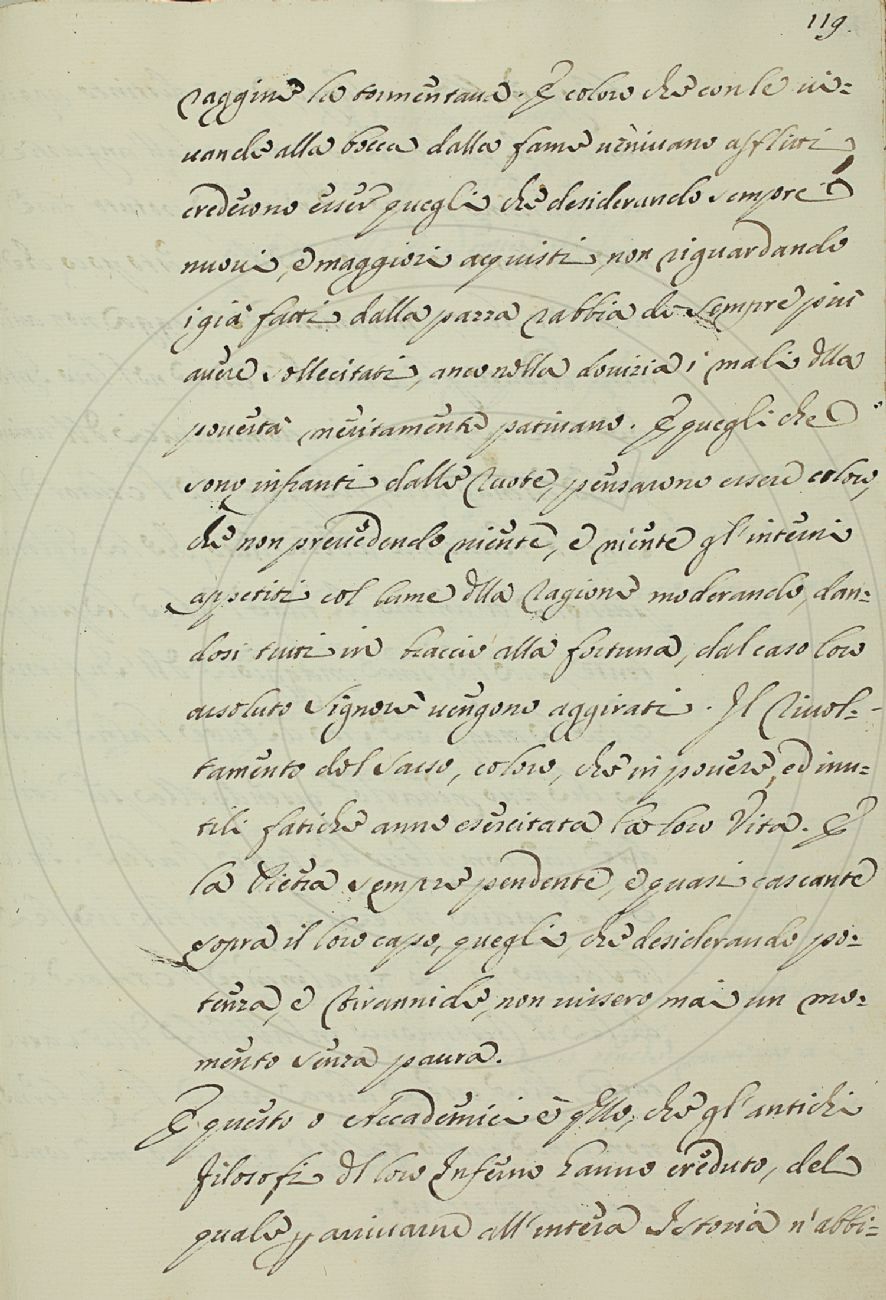 119.
raggine la tormentava. E coloro che con le vi=
vande alla bocca dalla fame venivano afflitti
credevono esser quegli che desiderando sempre
nuovi, e maggiori acquisti, non riguardando
i già fatti dalla pazza rabbia di sempre più
avere sollecitati, anco nella dovizia i mali dlla
povertà meritamente pativano. E quegli che
sono infranti dalle Ruote, pensarono essere coloro,
che non prevedendo niente, e niente gl'interni
appetiti col lume dlla ragione moderando, dan=
dosi tutti in braccio alla fortuna, dal caso loro
assoluto Signore vengono aggirati. Il Rivol=
tamento del Sasso, coloro, che in povere, ed inu=
tili fatiche anno esercitata la loro Vita. E
la Pietra sempre pendente, e quasi cascante
sopra il loro capo, quegli, che desiderando po=
tenza, e Tirannide, non vissero mai un mo=
mento senza paura.
E questo o Accademici è qllo, che gl'antichi
filosofi dl loro Inferno hanno creduto, del
quale p arrivarne all'intera Istoria n'abbi=